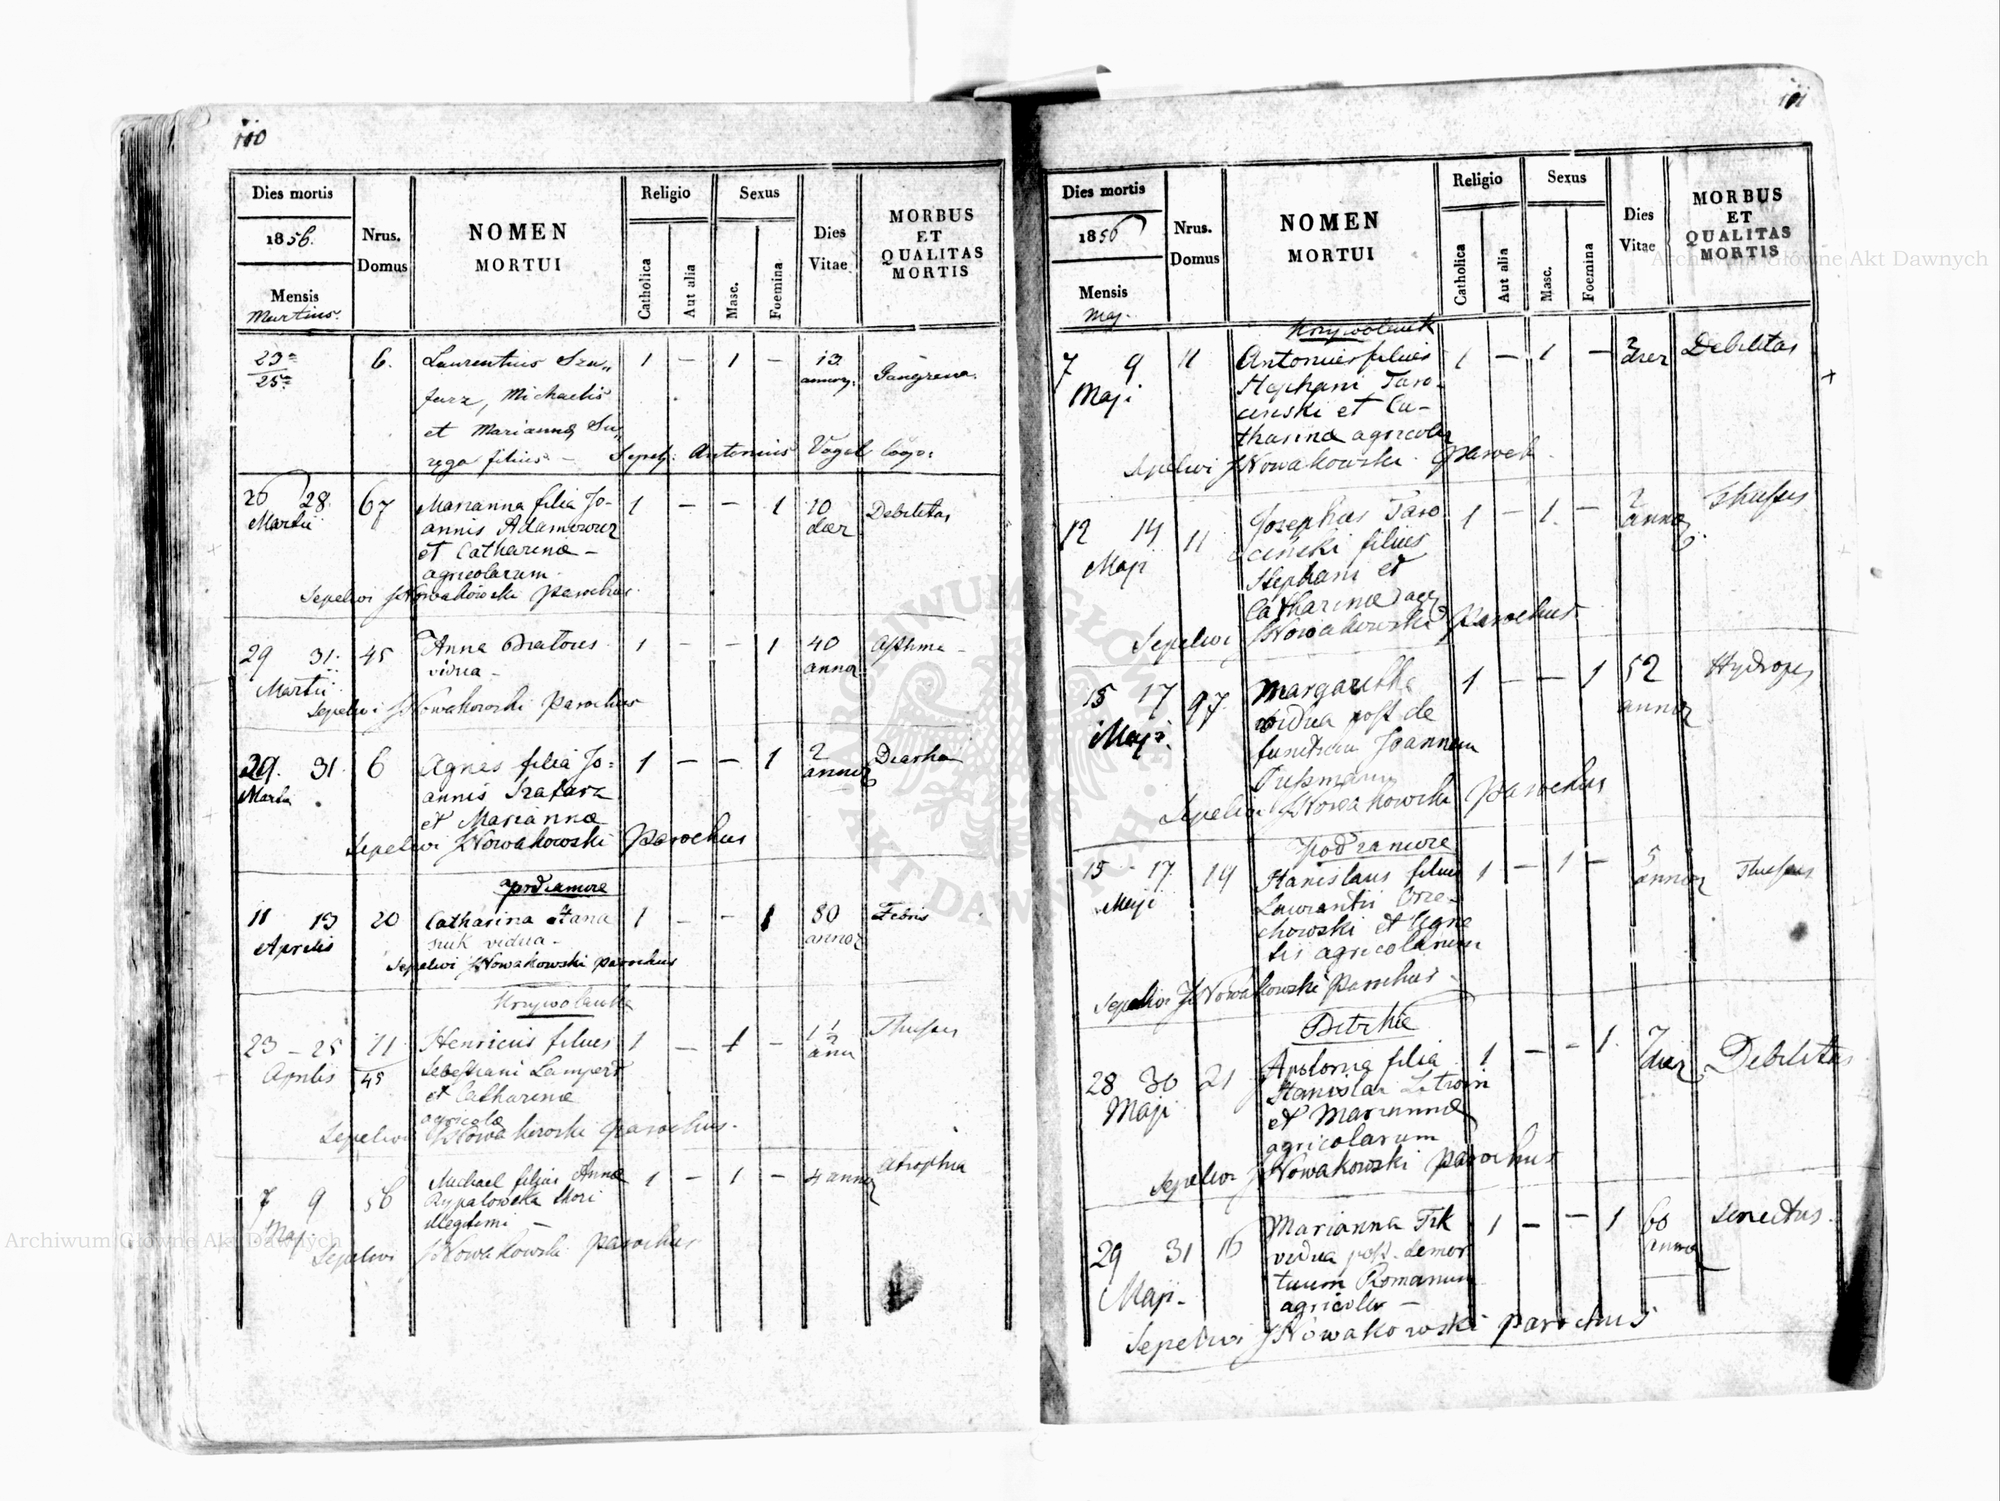 110
Dies mortis
1856.
Mensis
Martius.
Nrus.
Domus
NOMEN
MORTUI
Religio
Catholica
Aut alia
Sexus
Masc.
Foemina
Dies
Vitae
MORBUS
ET
QUALITAS
MORTIS
23a
25a
6.
Laurentius Sza„
farz, Michaelis
et Marianna Su„
ryga filius –
1 – 1 –
13
annor:
Gangrena.
Sepel: Antonius Vogel Coop:
26 28.
Martii
67
Marianna filia Jo-
annis Adamowicz
et Catharinæ –
agricolarum
1 – – 1
10
dier
Debilitas
Sepelivi J Nowakowski Parochus.
29 31.
Martii
45
Anna
vidua –
1 – – 1
40
annor
Asthma –
Sepelivi J Nowakowski Parochus
29. 31.
Martii
6
Agnes filia Jo=
annis Szafarz
et Marianna
1 – – 1
2
annor
Diarhea
Sepelivi J Nowakowski Parochus
Podzamcze
11 13
Aprilis
20
Catharina Stana
siuk vidua –
1 – – 1
80
annor
Febris
Sepelivi J Nowakowski parochus
23 – 25
Aprilis
71
45
Henricus filius
Sebestiani Lampert
et Catharinæ
agricolæ
1 – 1 –
1 1/2
ann
Thussis
Sepelivi J Nowakowski parochus.
7 9
Maj
56
Michael filius Annæ
illegitimi –
1 – 1 –
4 annor
Atrophia
Sepelivi J Nowakowski parochus
111
Dies mortis
1856
Mensis
Maj.
Nrus.
Domus
NOMEN
MORTUI
Religio
Catholica
Aut alia
Sexus
Masc.
Foemina
Dies
Vitae
MORBUS
ET
QUALITAS
MORTIS
7 9
Maji
11
Antonius filius
Stephani Taro-
cinski et Ca-
tharina agricolar
1 – 1 –
dier
Debilitas
Sepelivi J Nowakowski Paroch
12 14
Maji
11
Josephus Taro
ciński filius
Stephani et
Catharinæ
1 – 1. –
2
annor
Thussis
Sepelivi J Nowakowski Parochus
15 17
Maji.
97
Margaretha
vidua post de
functum Joannem
1 – – 1
52
annor
Hydrops
Sepelivi J Nowakowski Parochus
Podzamcze
15 – 17
Maji
19
Stanislaus filius
Laurentii Orze-
chowski et Agne
tis agricolarum
1 – 1 –
5
annor
Thussis
Sepelivi J Nowakowski Parochus –
28 30
Maji
21
Apolonia filia
Stanislai
et Mariannæ
agricolarum
1 – – 1.
7
dier
Debilitas
Sepelivi J Nowakowski parochus
29 31
Maji –
16
Marianna
vidua post. demor
tuum Romanum
agricolar –
1 – – 1
60
annor
Senectus.
Sepelivi J Nowakowski parochus
ARCHIWUM GŁÓWNE AKT DAWNYCH
Archiwum Główne Akt Dawnych
Archiwum Główne Akt Dawnych